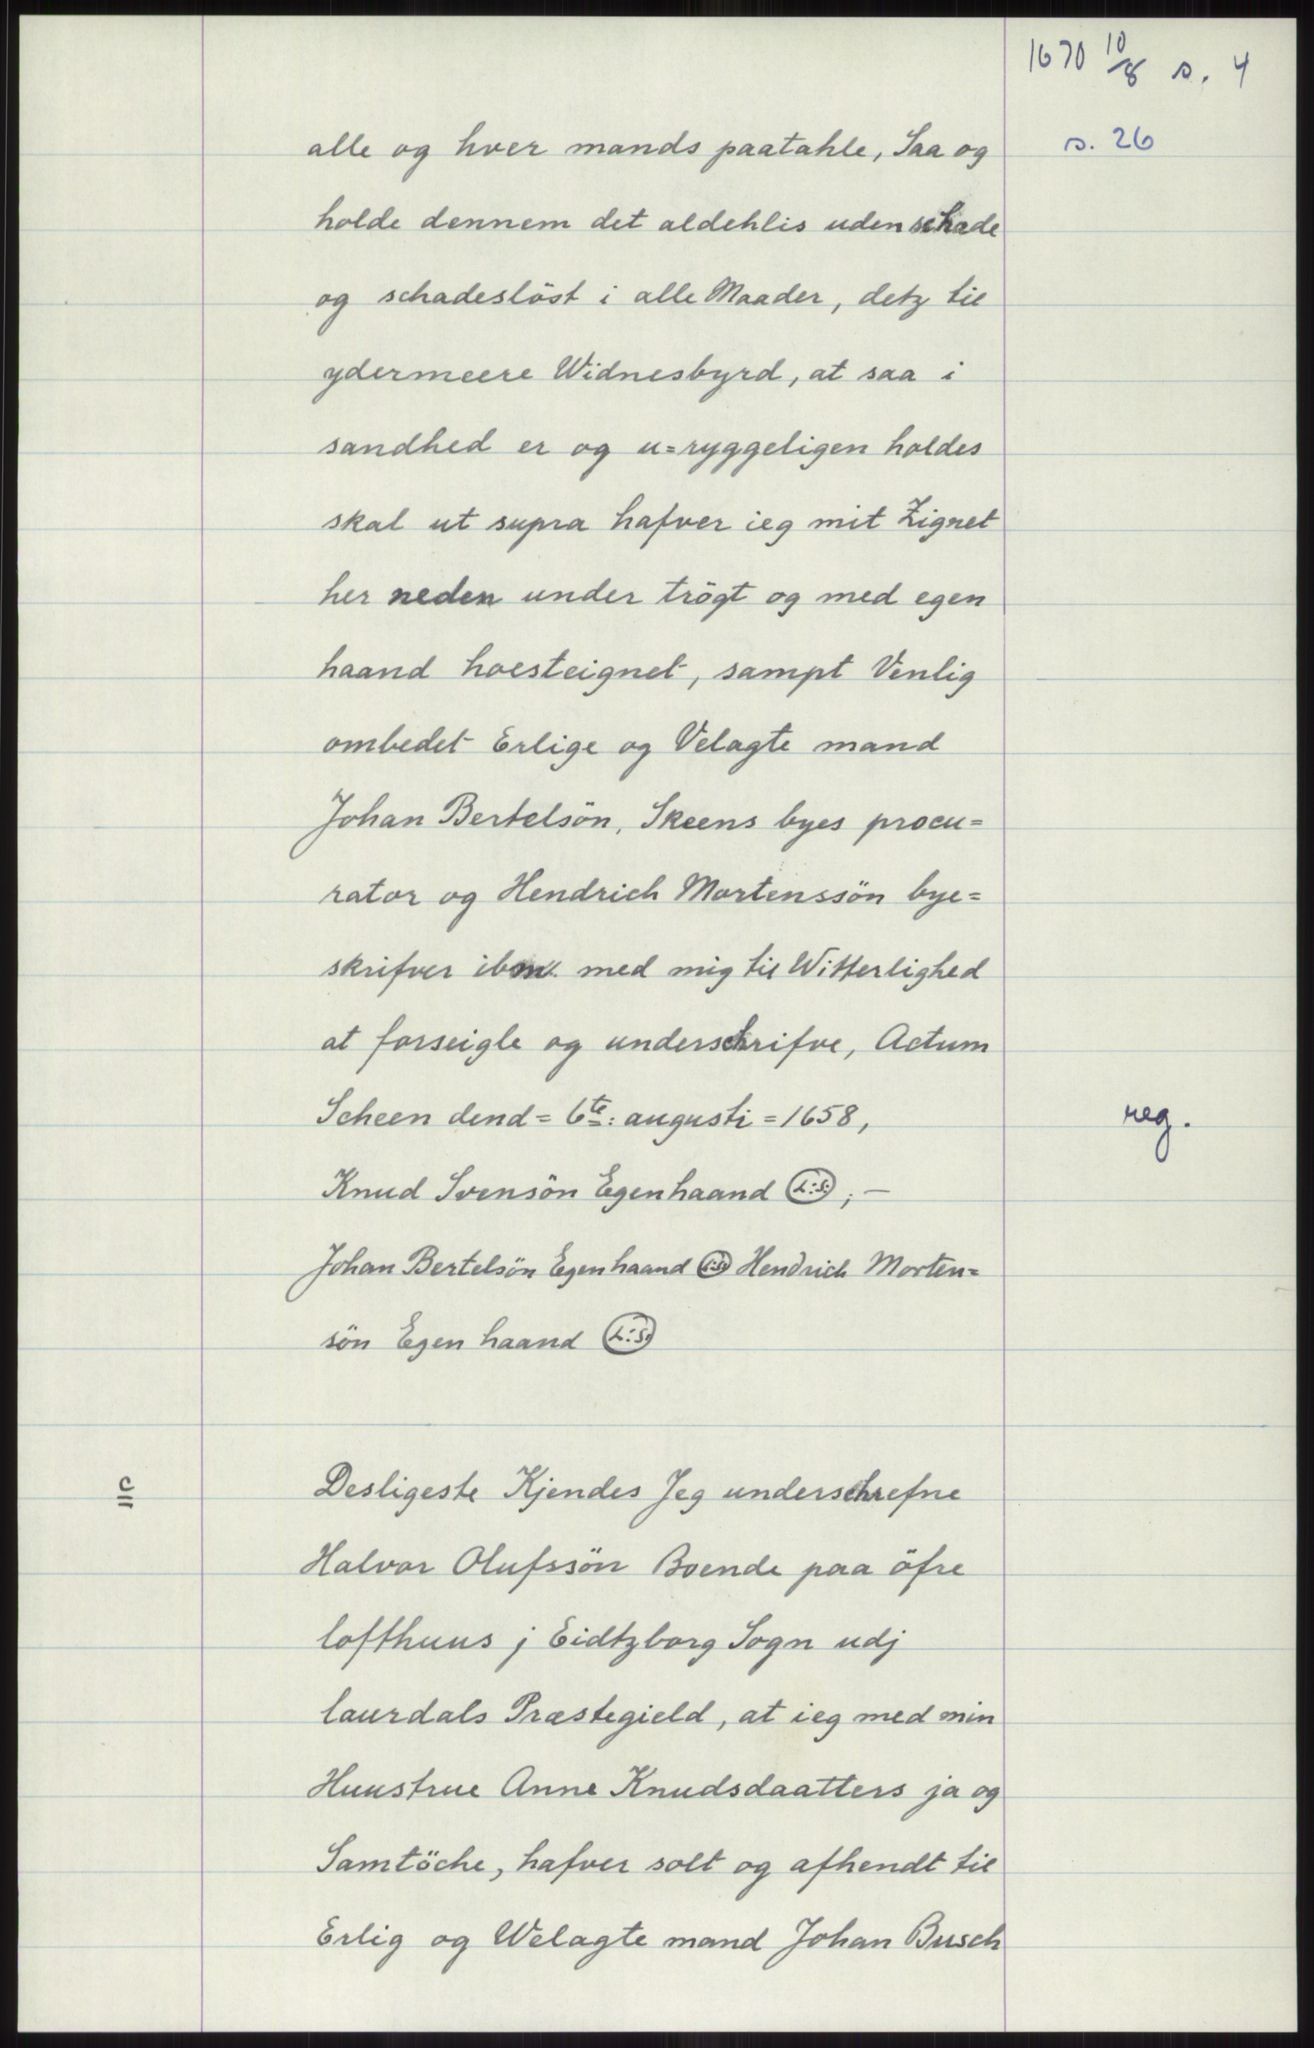 1670 10/8 s. 4
s. 26
alle og hver mands paatahle, Saa og
holde dennem det aldehlis uden schade
og schadeslöst i alle Maader, detz til
ydermeere Widnesbyrd, at saa i
sandhed er og u=ryggeligen holdes
skal ut supra hafver ieg mit Zignet
her neden under trögt og med egen
haand hosteignet, sampt Venlig
ombedet Erlige og Velagte mand
Johan Bertelsön, Skeens byes procu=
rator og Hendrich Mortenssön bye=
skrifver ibm. med mig til Witterlighed
at forseigle og underschrifve, Actum
Scheen dend = 6te: augusti = 1658,
reg.
Knud Svensön Egenhaand L:S: ; —
Johan Bertelsön Egenhaand L:S: Hendrich Morten=
sön Egen haand L:S:
Desligeste Kjendes Jeg underschrefne
Halvor Olufssön Boende paa öfre
lofthuus j Eidtzborg Sogn udj
laurdals Præstegield, at ieg med min
Huustrue Anne Knudsdaatters ja og
Samtöche, hafver solt og afhendt til
Erlig og Welagte mand Johan Busch